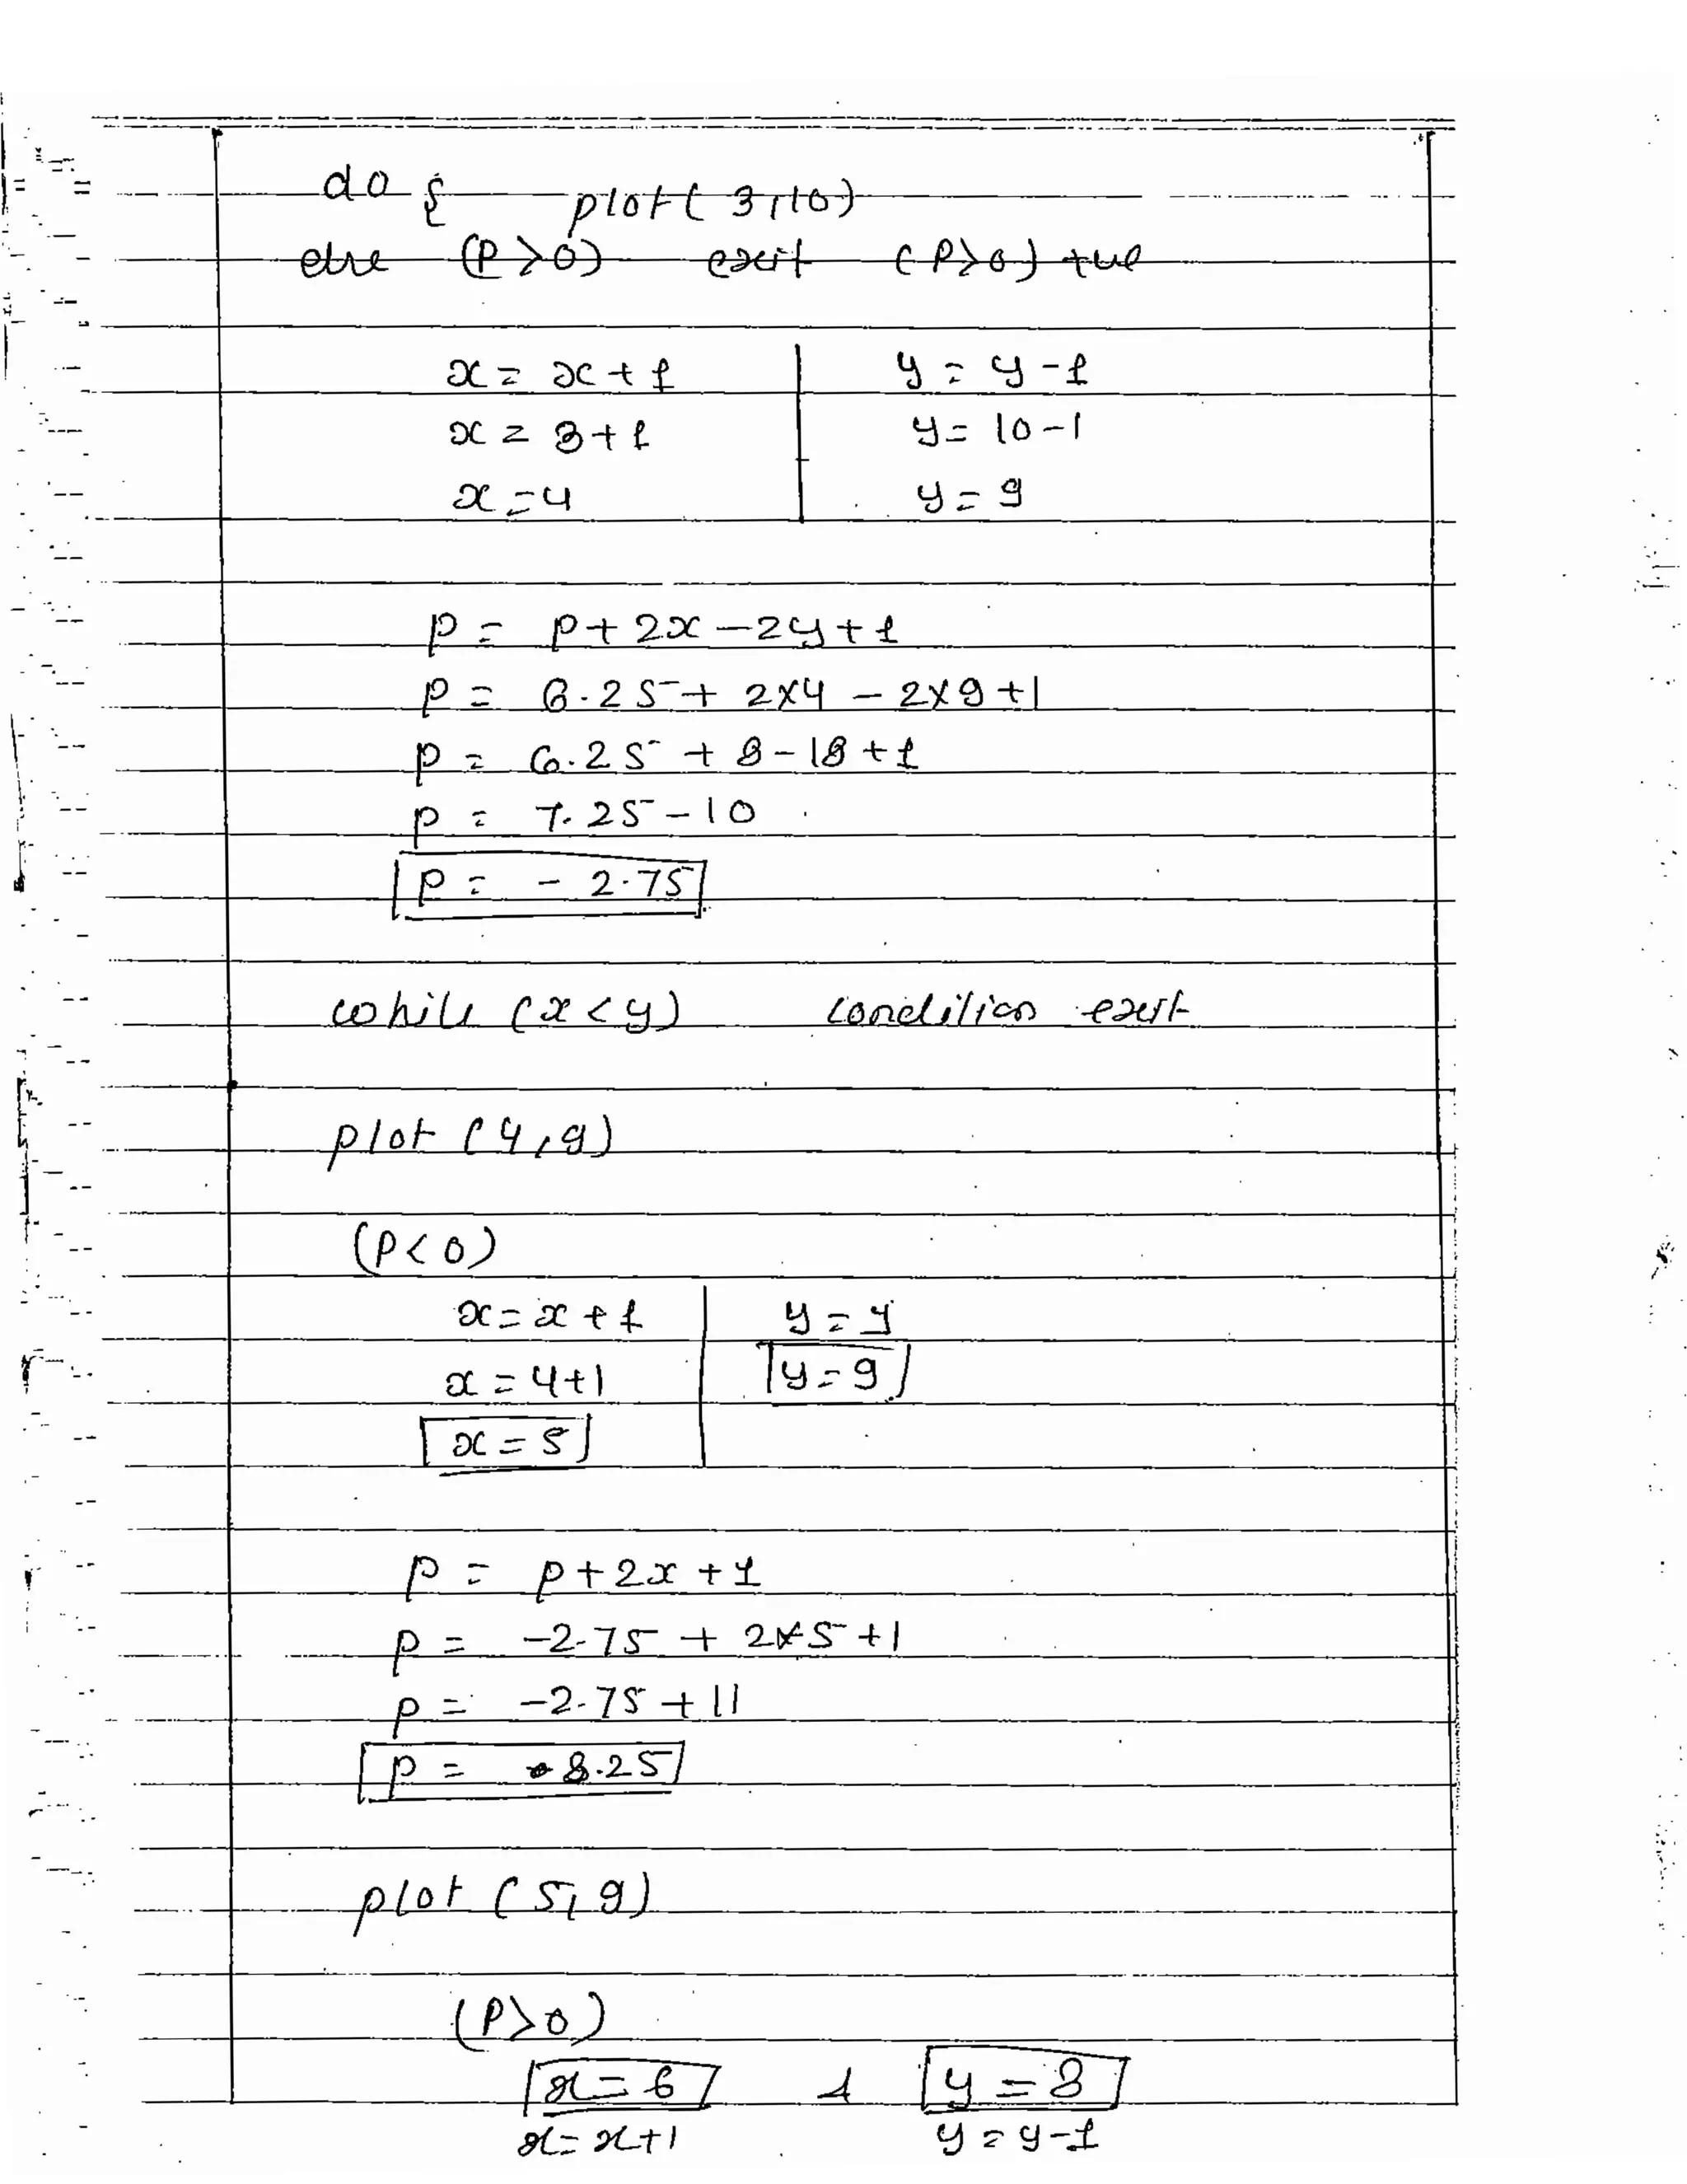 do {     plot( 3,10)
else (P>0)     exit     (P>0) true
x = x + 1     y = y - 1
x = 3 + 1     y = 10 - 1
x = 4     y = 9
p = p + 2x - 2y + 1
p = 6.25 + 2×4 - 2×9 + 1
p = 6.25 + 8 - 18 + 1
p = 7.25 - 10
p = - 2.75
while (x < y)     condition exit
plot (4,9)
(P<0)
x = x + 1     y = y
x = 4+1     y = 9
x = 5
p = p + 2x + 1
p = -2.75 + 2×5 + 1
p = -2.75 + 11
p = 8.25
plot (5,9)
(P>0)
x = 6     &     y = 8
x = x+1     y = y-1